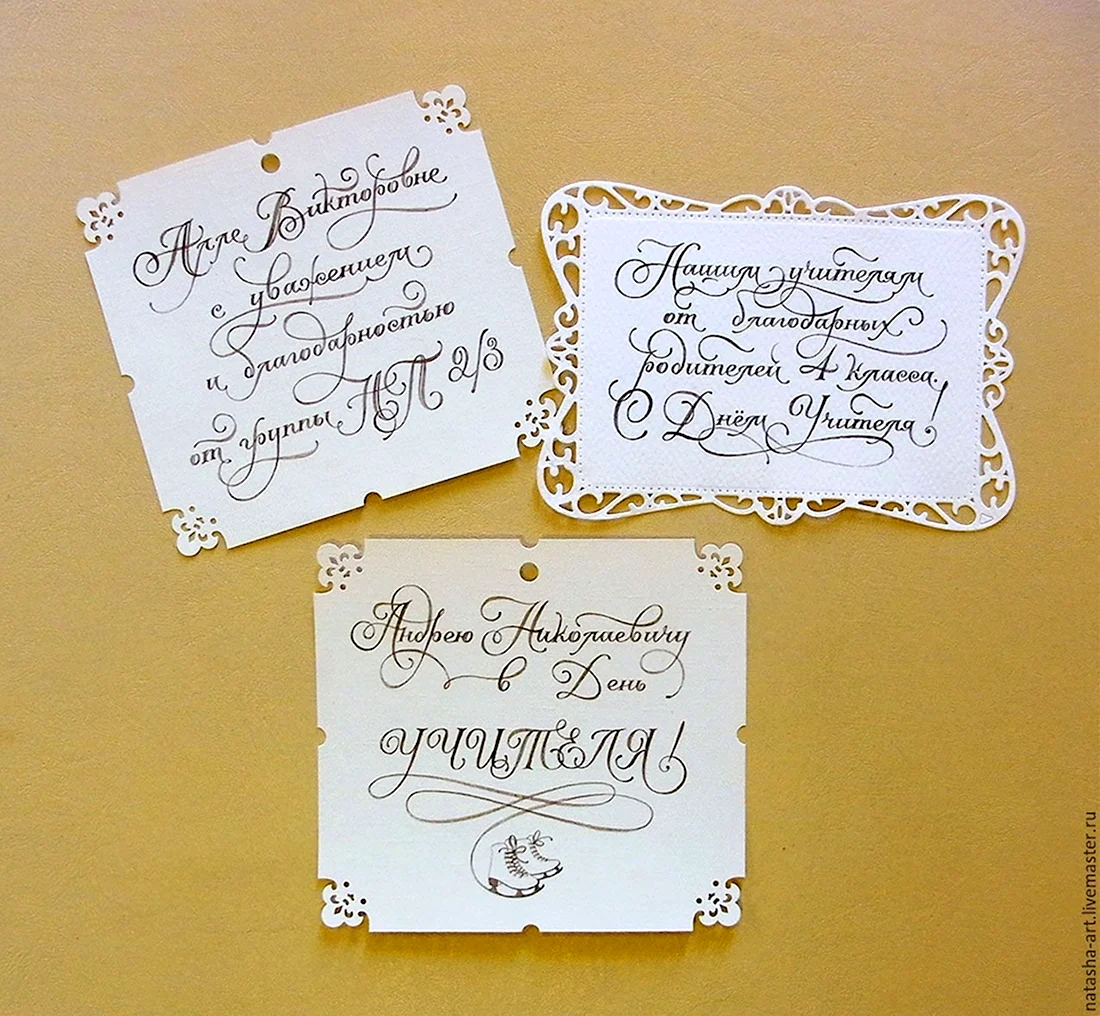 Алле Викторовне
с уважением
и благодарностью
от группы НП 2/3
Нашим учителям
от благодарных
родителей 4 класса.
С Днём Учителя!
Андрею Николаевичу
в День
УЧИТЕЛЯ!
natasha-art.livemaster.ru